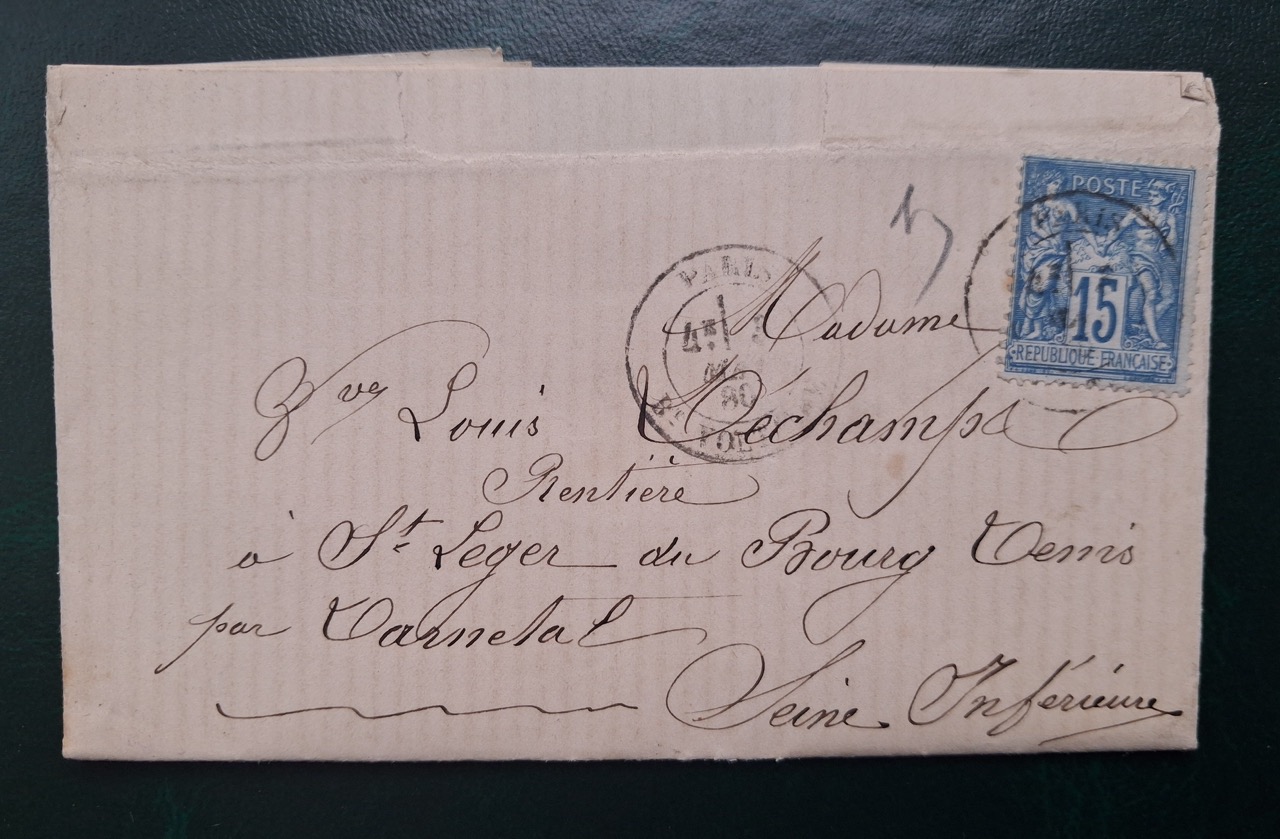 POSTE
15
REPUBLIQUE FRANÇAISE
PARIS
PARIS
4E
80
Madame
Vve Louis Dechamps
Rentière
à St. Leger du Bourg Denis
par Darnetal
Seine Inférieure